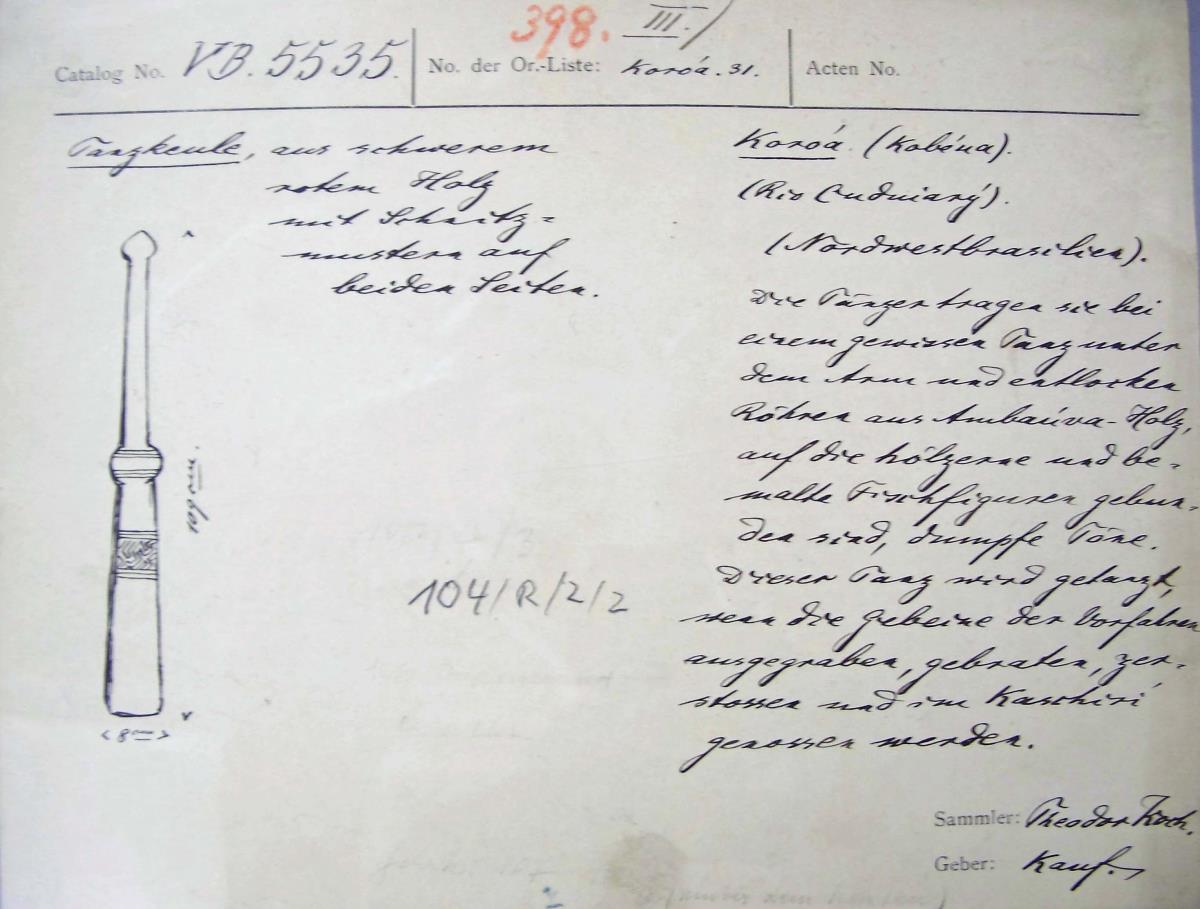 398. III.)
Catalog No. VB. 5535.
No. der Or.-Liste: Koróa. 31.
Acten No.
Tanzkeule, aus schwerem
rotem Holz
mit Schnitz=
mustern auf
beiden Seiten.
109 cm
< 8 cm >
104/R/2/2
Koróa. (Kobéua).
(Rio Cuduiarý).
(Nordwestbrasilien).
Die Tänzer tragen sie bei
einem gewissen Tanz unter
dem Arm und entlocken
Röhren aus Ambaúva-Holz,
auf die hölzerne und be-
malte Fischfiguren gebun-
den sind, dumpfe Töne.
Dieser Tanz wird getanzt,
wenn die Gebeine der Vorfahren
ausgegraben, gebraten, zer-
stossen und im Kaschiri
genossen werden.
Sammler: Theodor Koch.
Geber: Kauf.